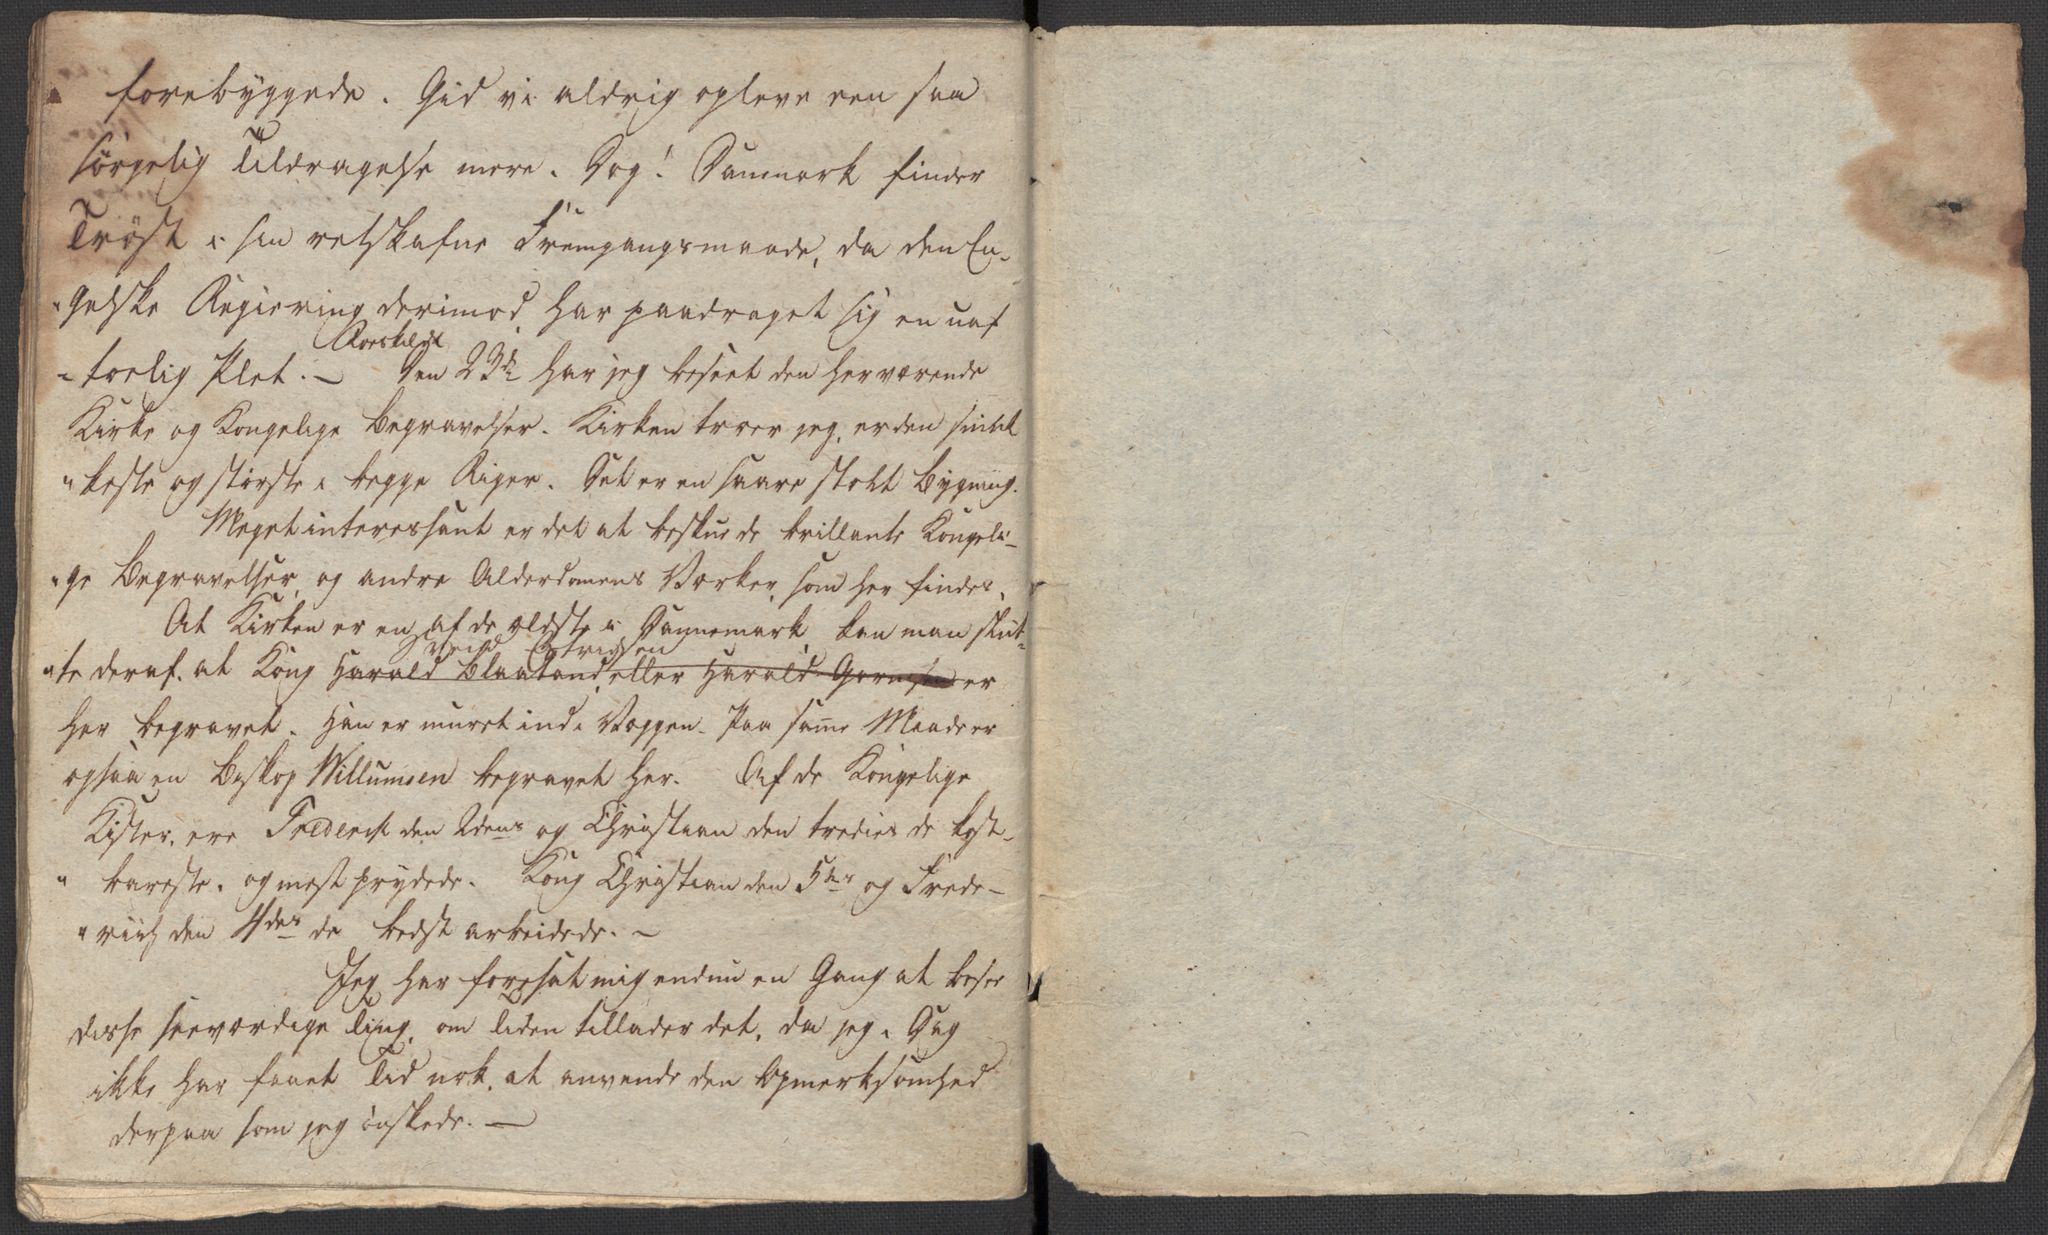 forebyggede. Gid vi aldrig opleve een saa
sørgelig Tildragelse mere. Dog! Danmark finder
Trøst i sin retskafne Fremgangsmaade, da den En-
"gelske Regiering derimod har paadraget sig en uaf
Roeskilde
"toelig Plet. — Den 23de har jeg beseet den herværende
Kirke og Kongelige Begravelser. Kirken troer jeg, er den smuk
"keste og største i begge Riger. Det er en saare stolt Bygning.
Meget interessant er det at beskue de brillante Kongeli-
"ge Begravelser, og andre Alderdomens Værker, som her findes.
At Kirken er en af de ældste i Dannemark kan man slut-
Svend Estridsen
"te deraf, at Kong Harald Blaatand, eller Harald Gormsen er
her begravet. Han er muret ind i Væggen. Paa same Maade er
ogsaa en Biskop Willumsen begravet her. Af de Kongelige
Kister, ere Frederik den 2dens og Christian den tredies de kost-
" bareste, og mest prydede. Kong Christian den 5tes og Frede-
"rich den 4des de bedst arbeidede. —
Jeg har foresat mig endnu en Gang at besee
disse seeværdige Ting, om Tiden tillader det, da jeg i Dag
ikke har faaet Tid nok, at anvende den Opmerksomhed
derpaa som jeg ønskede. —